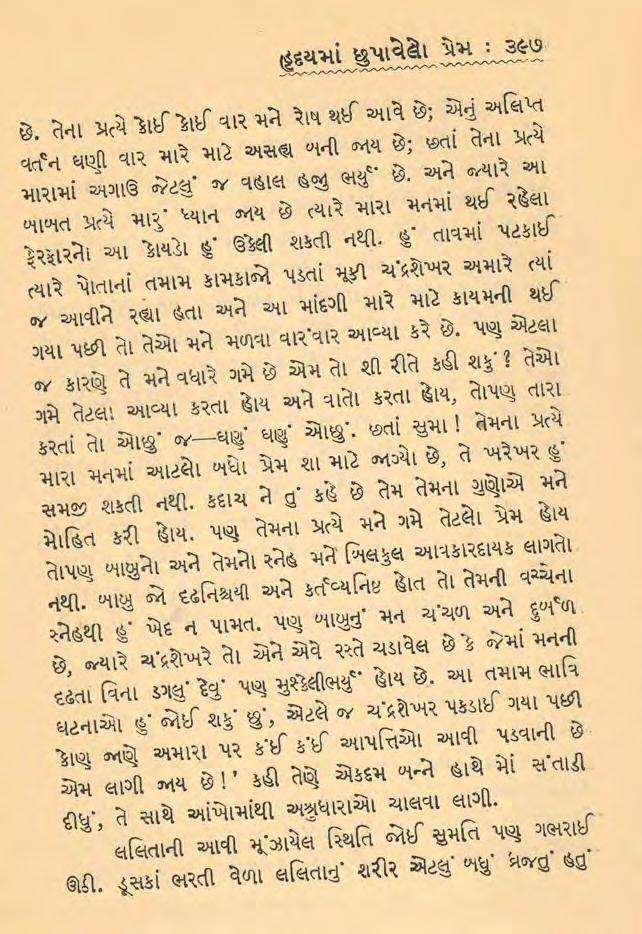 હૃદયમાં છુપાવેલો પ્રેમ : ૩૯૭
છે. તેના પ્રત્યે કોઈ કોઈ વાર મને રોષ થઈ આવે છે; એનું અલિપ્ત
વર્તન ઘણી વાર મારે માટે અસહ્ય બની જાય છે; છતાં તેના પ્રત્યે
મારામાં અગાઉ જેટલું જ વહાલ હજી ભર્યું છે. અને જ્યારે આ
બાબત પ્રત્યે મારું ધ્યાન જાય છે ત્યારે મારા મનમાં થઈ રહેલા
ફેરફારનો આ કોયડો હું ઉકેલી શકતી નથી. હું તાવમાં પટકાઈ
ત્યારે પોતાનાં તમામ કામકાજો પડતાં મૂકી ચંદ્રશેખર અમારે ત્યાં
જ આવીને રહ્યા હતા અને આ માંદગી મારે માટે કાયમની થઈ
ગયા પછી તો તેઓ મને મળવા વારંવાર આવ્યા કરે છે. પણ એટલા
જ કારણે તે મને વધારે ગમે છે એમ તો શી રીતે કહી શકું ? તેઓ
ગમે તેટલા આવ્યા કરતા હોય અને વાતો કરતા હોય, તોપણ તારા
કરતાં તો ઓછું જ—ઘણું ઘણું ઓછું. છતાં સુમા ! તેમના પ્રત્યે
મારા મનમાં આટલો બધો પ્રેમ શા માટે જાગ્યો છે, તે ખરેખર હું
સમજી શકતી નથી. કદાચ ને તું કહે છે તેમ તેમના ગુણોએ મને
મોહિત કરી હોય. પણ તેમના પ્રત્યે મને ગમે તેટલો પ્રેમ હોય
તોપણ બાબુનો અને તેમનો સ્નેહ મને બિલકુલ આવકારદાયક લાગતો
નથી. બાબુ જો દૃઢનિશ્ચયી અને કર્તવ્યનિષ્ઠ હોત તો તેમની વચ્ચેના
સ્નેહથી હું ખેદ ન પામત. પણ બાબુનું મન ચંચળ અને દુર્બળ
છે, જ્યારે ચંદ્રશેખરે તો એને એવે રસ્તે ચડાવેલ છે કે જેમાં મનની
દૃઢતા વિના ડગલું દેવું પણ મુશ્કેલીભર્યું હોય છે. આ તમામ ભાવિ
ઘટનાઓ હું જોઈ શકું છું, એટલે જ ચંદ્રશેખર પકડાઈ ગયા પછી
કોણ જાણે અમારા પર કંઈ કંઈ આપત્તિઓ આવી પડવાની છે
એમ લાગી જાય છે!' કહી તેણે એકદમ બન્ને હાથે મોં સંતાડી
દીધું, તે સાથે આંખોમાંથી અશ્રુધારાઓ ચાલવા લાગી.
લલિતાની આવી મૂંઝાયેલ સ્થિતિ જોઈ સુમતિ પણ ગભરાઈ
ઊઠી. ડૂસકાં ભરતી વેળા લલિતાનું શરીર એટલું બધું ધ્રૂજતું હતું